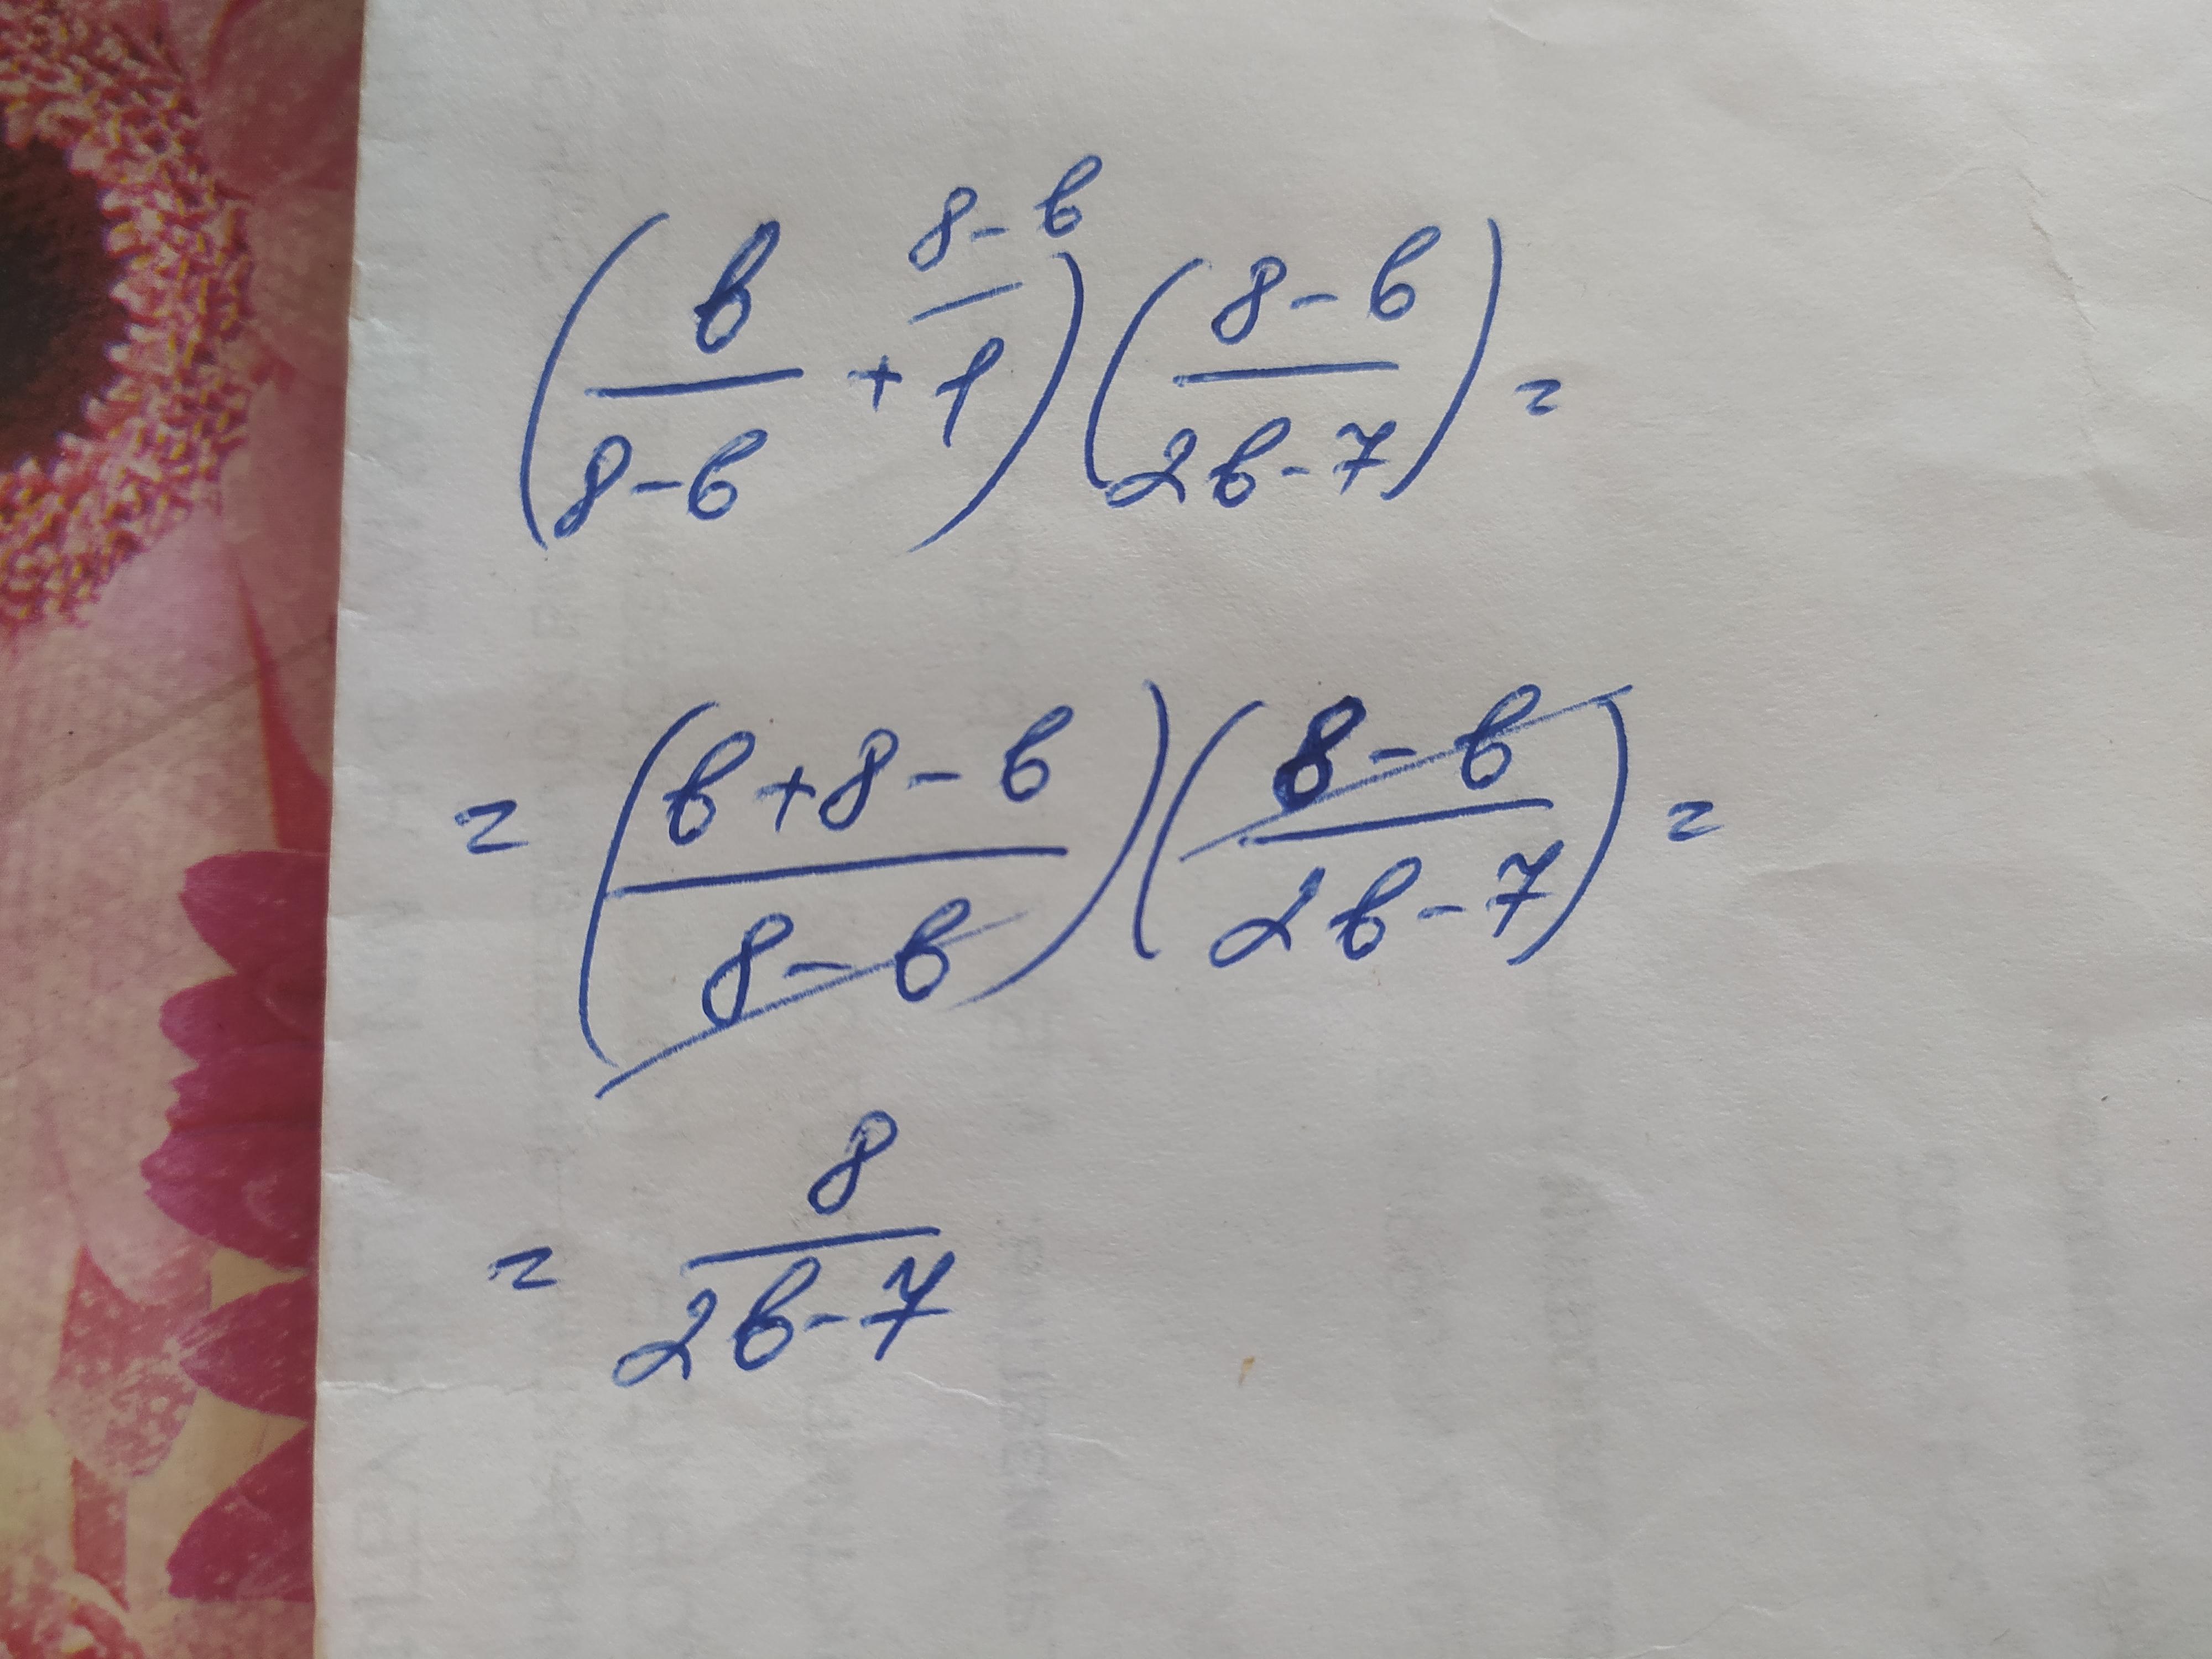 (b/(8-b) + 1^(8-b))((8-b)/(2b-7)) =
= ((b+8-b)/(8-b))((8-b)/(2b-7)) =
= 8/(2b-7)